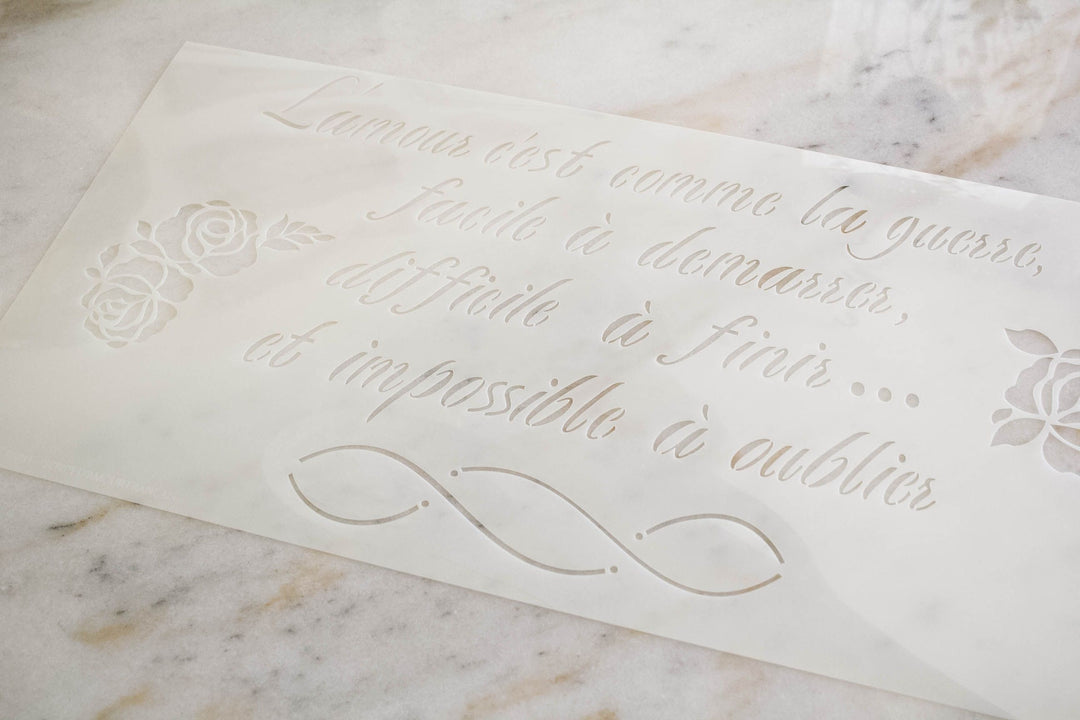 L'amour c'est comme la guerre,
facile à demarrer,
difficile à finir...
et impossible à oublier